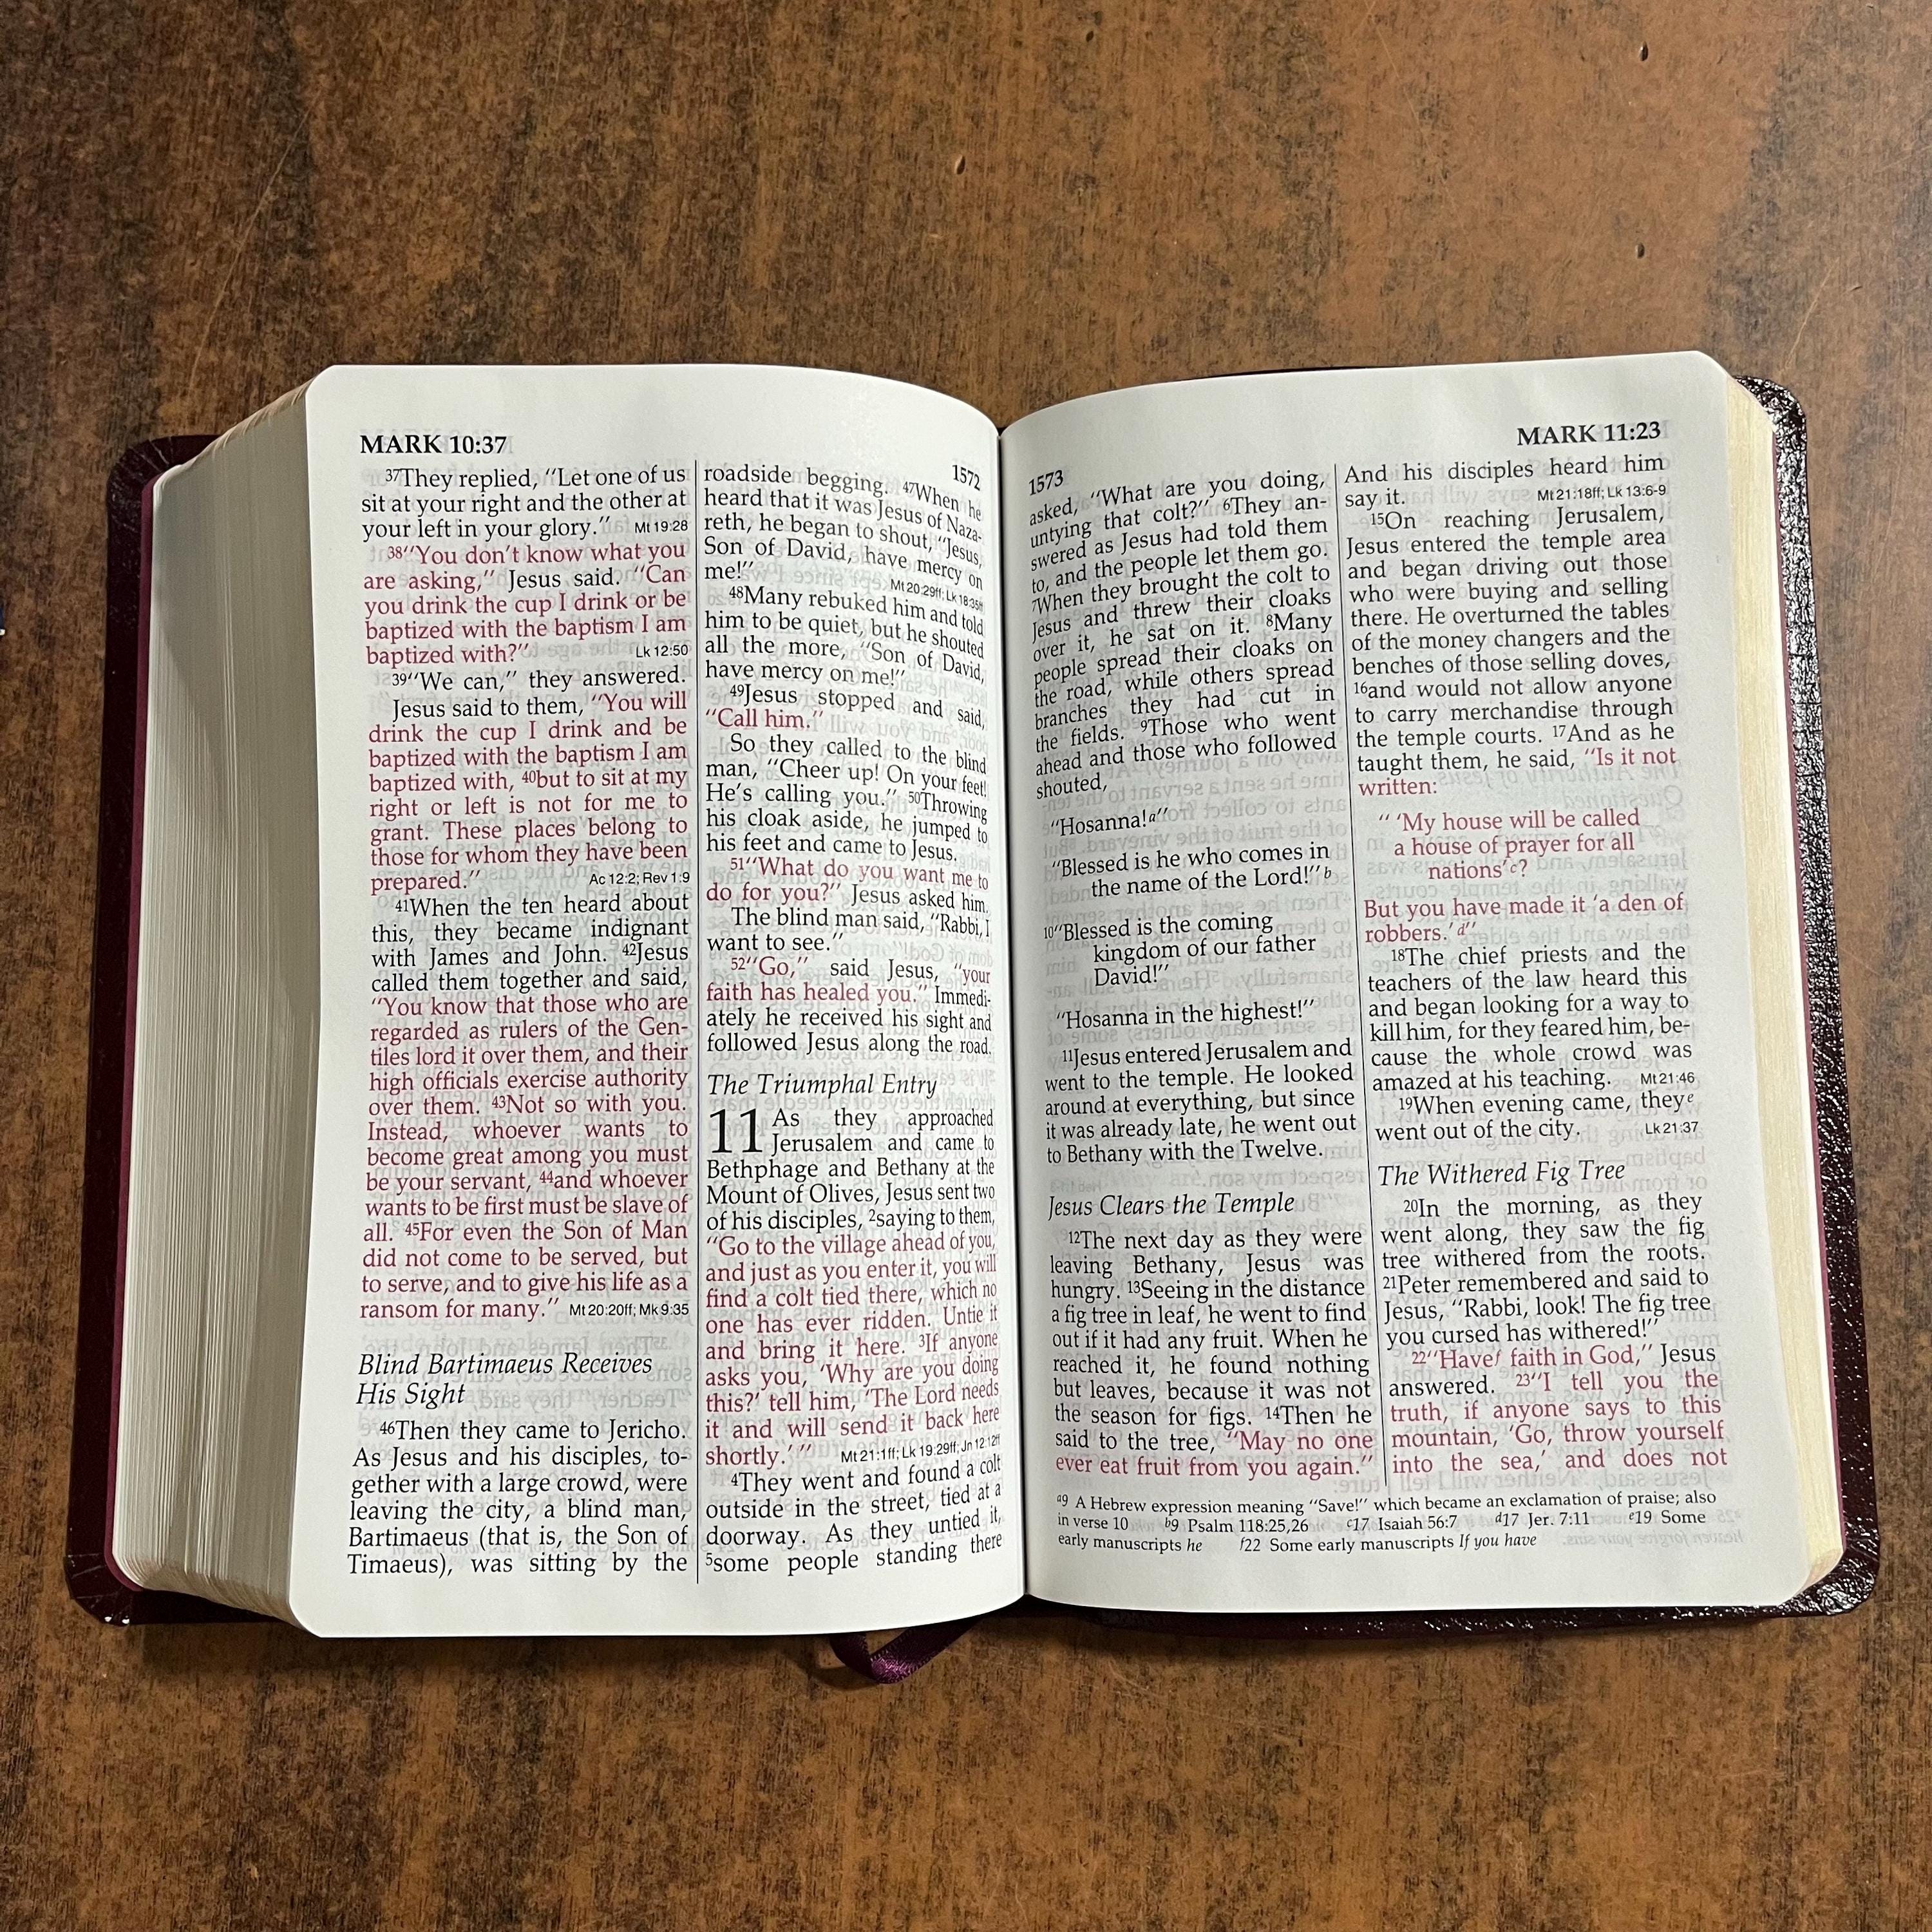 MARK 10:37
1572
³⁷They replied, “Let one of us
sit at your right and the other at
your left in your glory.” Mt 19:28
³⁸“You don’t know what you
are asking,” Jesus said. “Can
you drink the cup I drink or be
baptized with the baptism I am
baptized with?” Lk 12:50
³⁹“We can,” they answered.
Jesus said to them, “You will
drink the cup I drink and be
baptized with the baptism I am
baptized with, ⁴⁰but to sit at my
right or left is not for me to
grant. These places belong to
those for whom they have been
prepared.” Ac 12:2; Rev 1:9
⁴¹When the ten heard about
this, they became indignant
with James and John. ⁴²Jesus
called them together and said,
“You know that those who are
regarded as rulers of the Gen-
tiles lord it over them, and their
high officials exercise authority
over them. ⁴³Not so with you.
Instead, whoever wants to
become great among you must
be your servant, ⁴⁴and whoever
wants to be first must be slave of
all. ⁴⁵For even the Son of Man
did not come to be served, but
to serve, and to give his life as a
ransom for many.” Mt 20:20ff; Mk 9:35
Blind Bartimaeus Receives
His Sight
⁴⁶Then they came to Jericho.
As Jesus and his disciples, to-
gether with a large crowd, were
leaving the city, a blind man,
Bartimaeus (that is, the Son of
Timaeus), was sitting by the
roadside begging. ⁴⁷When he
heard that it was Jesus of Naza-
reth, he began to shout, “Jesus,
Son of David, have mercy on
me!” Mt 20:29ff; Lk 18:35ff
⁴⁸Many rebuked him and told
him to be quiet, but he shouted
all the more, “Son of David,
have mercy on me!”
⁴⁹Jesus stopped and said,
“Call him.”
So they called to the blind
man, “Cheer up! On your feet!
He’s calling you.” ⁵⁰Throwing
his cloak aside, he jumped to
his feet and came to Jesus.
⁵¹“What do you want me to
do for you?” Jesus asked him.
The blind man said, “Rabbi, I
want to see.”
⁵²“Go,” said Jesus, “your
faith has healed you.” Immedi-
ately he received his sight and
followed Jesus along the road.
The Triumphal Entry
11 As they approached
Jerusalem and came to
Bethphage and Bethany at the
Mount of Olives, Jesus sent two
of his disciples, ²saying to them,
“Go to the village ahead of you,
and just as you enter it, you will
find a colt tied there, which no
one has ever ridden. Untie it
and bring it here. ³If anyone
asks you, ‘Why are you doing
this?’ tell him, ‘The Lord needs
it and will send it back here
shortly.’ ” Mt 21:1ff; Lk 19:29ff; Jn 12:12ff
⁴They went and found a colt
outside in the street, tied at a
doorway. As they untied it,
⁵some people standing there
MARK 11:23
1573
asked, “What are you doing,
untying that colt?” ⁶They an-
swered as Jesus had told them
to, and the people let them go.
⁷When they brought the colt to
Jesus and threw their cloaks
over it, he sat on it. ⁸Many
people spread their cloaks on
the road, while others spread
branches they had cut in
the fields. ⁹Those who went
ahead and those who followed
shouted,
“Hosanna!ᵃ”
“Blessed is he who comes in
the name of the Lord!”ᵇ
¹⁰“Blessed is the coming
kingdom of our father
David!”
“Hosanna in the highest!”
¹¹Jesus entered Jerusalem and
went to the temple. He looked
around at everything, but since
it was already late, he went out
to Bethany with the Twelve.
Jesus Clears the Temple
¹²The next day as they were
leaving Bethany, Jesus was
hungry. ¹³Seeing in the distance
a fig tree in leaf, he went to find
out if it had any fruit. When he
reached it, he found nothing
but leaves, because it was not
the season for figs. ¹⁴Then he
said to the tree, “May no one
ever eat fruit from you again.”
And his disciples heard him
say it. Mt 21:18ff; Lk 13:6-9
¹⁵On reaching Jerusalem,
Jesus entered the temple area
and began driving out those
who were buying and selling
there. He overturned the tables
of the money changers and the
benches of those selling doves,
¹⁶and would not allow anyone
to carry merchandise through
the temple courts. ¹⁷And as he
taught them, he said, “Is it not
written:
“ ‘My house will be called
a house of prayer for all
nations’ᶜ?
But you have made it ‘a den of
robbers.’ᵈ”
¹⁸The chief priests and the
teachers of the law heard this
and began looking for a way to
kill him, for they feared him, be-
cause the whole crowd was
amazed at his teaching. Mt 21:46
¹⁹When evening came, theyᵉ
went out of the city. Lk 21:37
The Withered Fig Tree
²⁰In the morning, as they
went along, they saw the fig
tree withered from the roots.
²¹Peter remembered and said to
Jesus, “Rabbi, look! The fig tree
you cursed has withered!”
²²“Haveᶠ faith in God,” Jesus
answered. ²³“I tell you the
truth, if anyone says to this
mountain, ‘Go, throw yourself
into the sea,’ and does not
ᵃ9 A Hebrew expression meaning “Save!” which became an exclamation of praise; also
in verse 10 ᵇ9 Psalm 118:25,26 ᶜ17 Isaiah 56:7 ᵈ17 Jer. 7:11 ᵉ19 Some
early manuscripts he ᶠ22 Some early manuscripts If you have